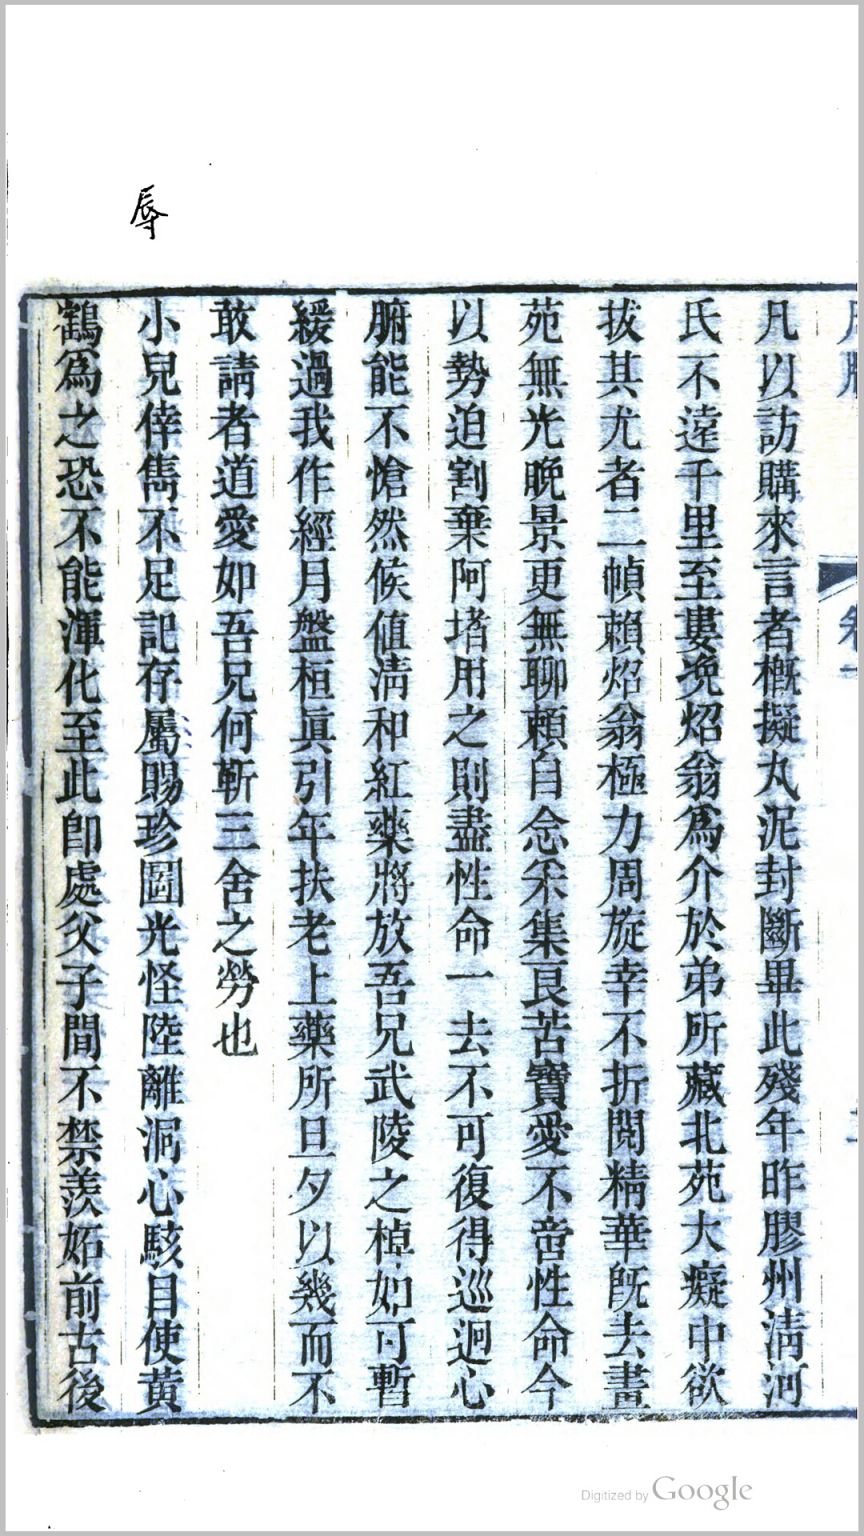 辱
凡以訪購來言者槪擬丸泥封斷畢此殘年昨膠州淸河
氏不遠千里至婁浼炤翁爲介於弟所藏北苑大癡中欲
拔其尤者二幀賴炤翁極力周旋幸不折閱精華旣去畫
苑無光晚景更無聊賴自念采集艮苦寶愛不啻性命今
以勢迫割棄阿堵用之則盡性命一去不可復得巡迴心
腑能不愴然候値淸和紅藥將放吾兄武陵之棹如可暫
緩過我作經月盤桓眞引年扶老上藥所旦夕以幾而不
敢請者道愛如吾兄何靳三舍之勞也
小兒倖雋不足記存屬賜珍圖光怪陸離泂心駭目使黄
鶴爲之恐不能渾化至此卽處父子間不禁羨妬前古後
Digitized by Google